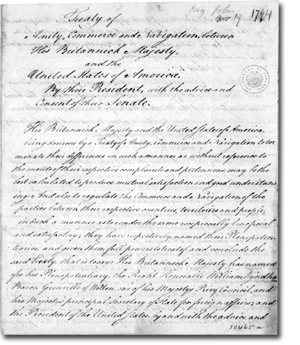 Jay, John
Nov 19 1794
Treaty of
Amity, Commerce and Navigation, between
His Britannick Majesty,
and the
United States of America,
By their President, with the advice and
Consent of their Senate.
His Britannick Majesty and the United States of America
being desirous by a Treaty of Amity, Commerce and Navigation to ter-
minate their differences in such a manner, as without reference to
the merits of their respective complaints and pretensions, may be the
best calculated to produce mutual satisfaction and good understand-
ing: And also to regulate the Commerce and Navigation of the
parties between their respective countries, territories and people,
in such a manner as to render the same reciprocally beneficial
and satisfactory; they have respectively named their Plenipoten-
tiaries, and given them full powers to treat of and conclude the
said treaty, that is to say: His Britannick Majesty has named
for his Plenipotentiary, the Right Honorable William Wyndham
Baron Grenville of Wotton, one of his Majesty's Privy Council, and
his Majesty's principal Secretary of State for foreign affairs; and
the President of the United States, by and with the advice and
10465